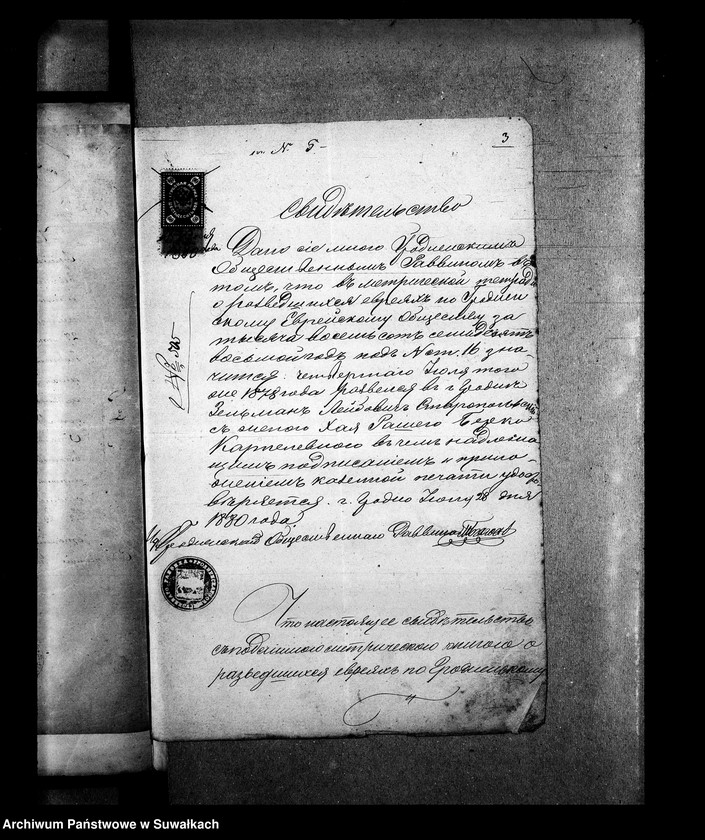 къ № 5
3
Свидѣтельство
Дано сіе мною Гродненскимъ
Общественнымъ Раввиномъ въ
томъ, что въ метрической тетради
о разведшихся евреяхъ по Гроднен
скому Еврейскому Обществу за
тысяча восемьсотъ семидесятъ
восьмой годъ подъ № 16 зна-
чится: четвертаго Іюля того
же 1878 года развелся въ г. Гроднѣ
Гельманъ Лейбовичъ
съ женою Хая Рашею Берко
Карпелевною въ чемъ надлежа
щимъ подписаніемъ и прило-
женіемъ казенной печати удосто
вѣряется. г. Гродно Іюля 28 дня
1880 года
Гродненскій Общественный Раввинъ
№ 525
Что настоящее свидѣтельство
съ подлинною метрическою книгою о
разведшихся евреяхъ по Гродненскому
Archiwum Państwowe w Suwałkach